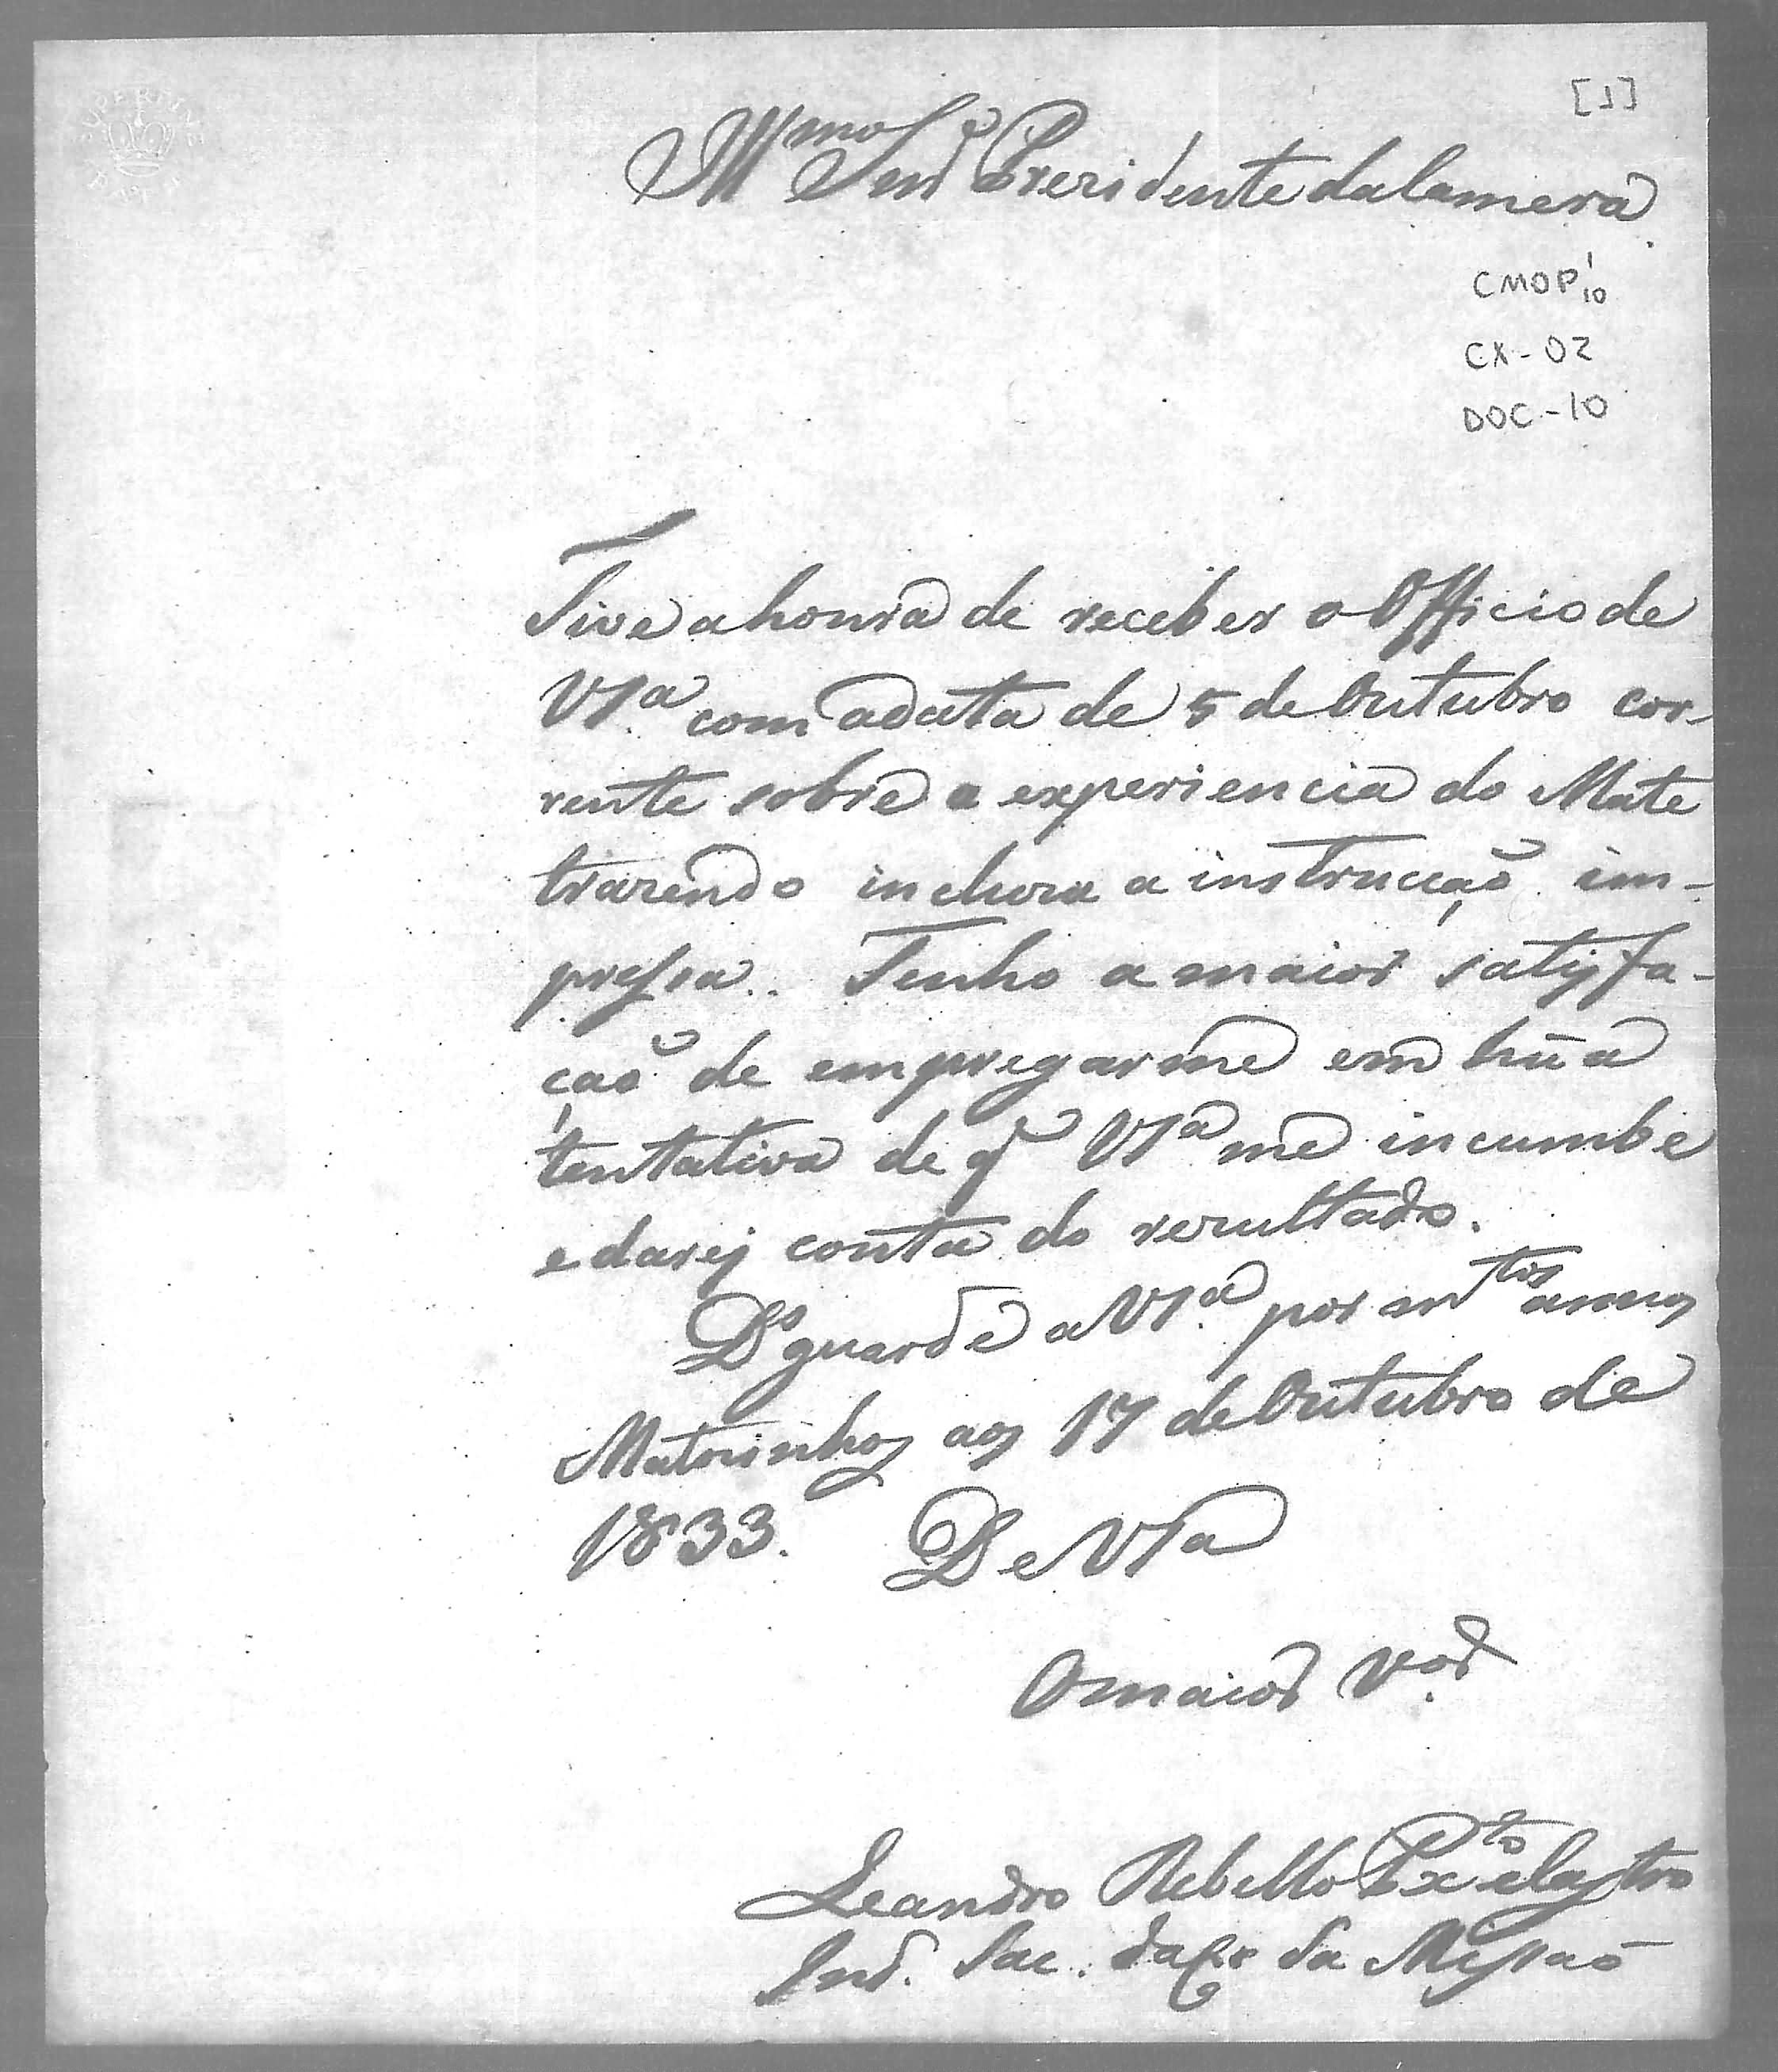 [1]
SUPERFINE
Illmo Snr Prezidente da Camera
CMOP 1/10
CX-02
DOC-10
Tive a honra de receber o Officio de
VSa com a data de 5 de Outubro cor-
rente sobre a experiencia do Mate
trazendo incluza a instrucção im-
pressa. Tenho a maior satisfa-
ção de empregarme em hũa
tentativa de q̃ VSa me incumbe
e darej conta do rezultado.
Ds guarde a VSa por mtos annos
Matozinhos aos 17 de Outubro de
1833. De VSa
O maior Vor
Leandro Rebello Pxto e Castro
Ind. Sac. da Cg da Missaõ